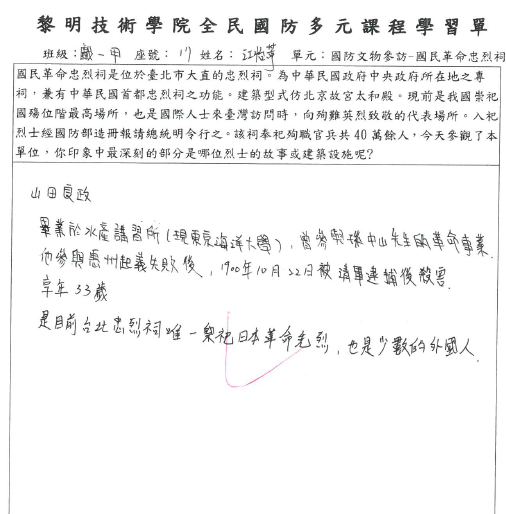 黎明技術學院全民國防多元課程學習單
班級：一甲 座號：17 姓名：江 單元：國防文物參訪-國民革命忠烈祠
國民革命忠烈祠是位於臺北市大直的忠烈祠。為中華民國政府中央政府所在地之專
祠，兼有中華民國首都忠烈祠之功能。建築型式仿北京故宮太和殿。現前是我國崇祀
國殤位階最高場所，也是國際人士來臺灣訪問時，向殉難英烈致敬的代表場所。入祀
烈士經國防部造冊報請總統明令行之。該祠奉祀殉職官兵共 40 萬餘人，今天參觀了本
單位，你印象中最深刻的部分是哪位烈士的故事或建築設施呢？
山田良政
畢業於水產講習所（現東京海洋大學），曾參與孫中山先生的革命事業.
他參與惠州起義失敗後，1900年10月22日被清軍逮捕後殺害.
享年33歲
是目前台北忠烈祠唯一祭祀日本革命先烈，也是少數的外國人.